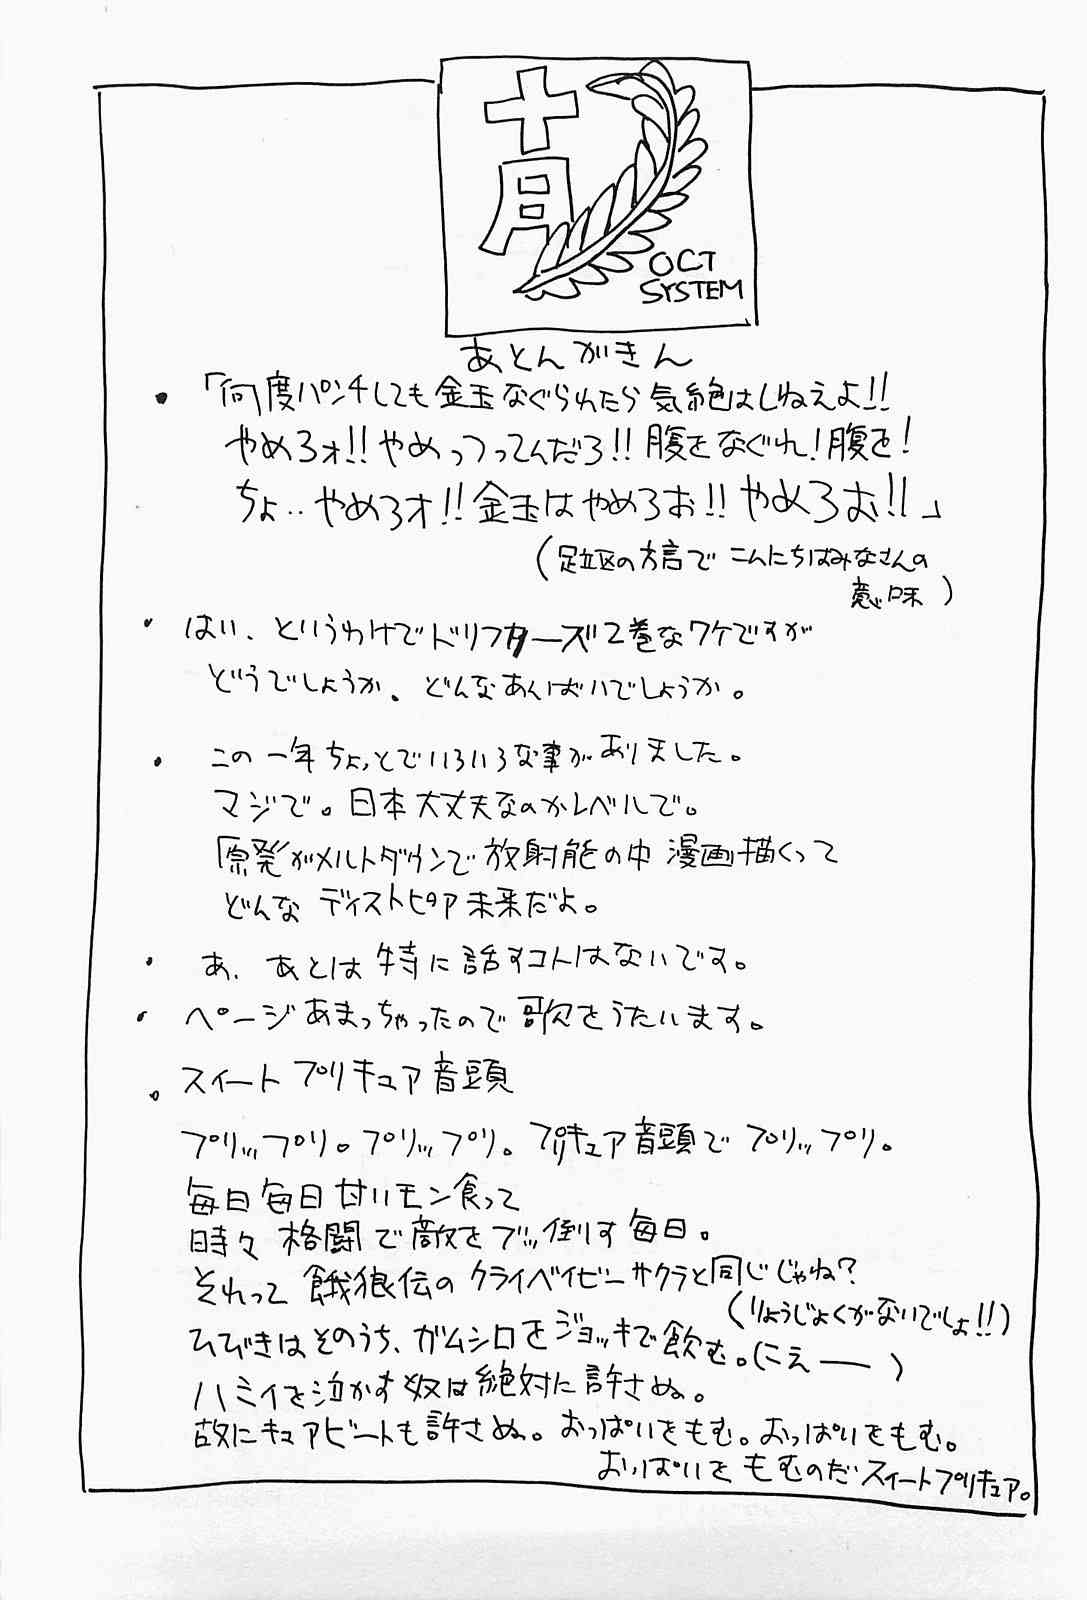 十月
OCT
SYSTEM
あとんがきん
・「何度パンチしても金玉なぐられたら気絶はしねえよ!!
やめろォ!!やめっつってんだろ!!腹をなぐれ!腹を!
ちょ‥やめろオ!!金玉はやめろお!!やめろお!!」
(足立区の方言でこんにちはみなさんの
意味)
・はい、というわけでドリフターズ2巻なワケですが
どうでしょうか、どんなあんばいでしょうか。
・この一年ちょっとでいろいろな事がありました。
マジで。日本大丈夫なのかレベルで。
原発がメルトダウンで放射能の中漫画描くって
どんなディストピア未来だよ。
・あ、あとは特に話すコトはないです。
・ページあまっちゃったので歌をうたいます。
・スイートプリキュア音頭
プリップリ。プリップリ。プリキュア音頭でプリップリ。
毎日毎日甘いモン食って
時々格闘で敵をブッ倒す毎日。
それって餓狼伝のクライベイビーサクラと同じじゃね?
(りょうじょくがないでしょ!!)
ひびきはそのうち、ガムシロをジョッキで飲む。(こえー)
ハミィを泣かす奴は絶対に許さぬ。
故にキュアビートも許さぬ。おっぱいをもむ。おっぱいをもむ。
おっぱいをもむのだスイートプリキュア。